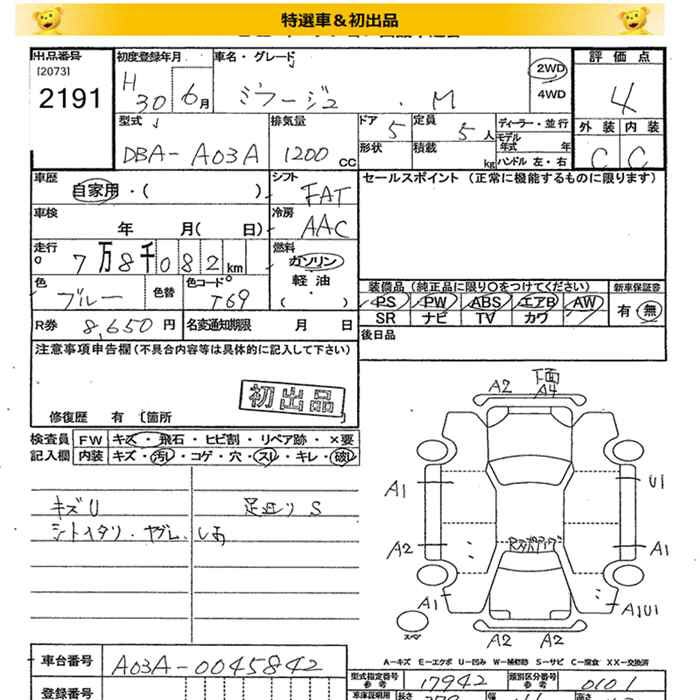 特選車＆初出品
出品番号 初度登録年月 車名・グレード 評価点
[2073]
2191
H 30 6月 ミラージュ . M 2WD 4WD 4
型式 排気量 ドア 定員 ディーラー・並行 外装 内装
DBA-A03A 1200 CC 5 5人 モデル年式 年 C C
形状 積載 kg ハンドル 左・右
車歴 シフト セールスポイント（正常に機能するものに限ります）
自家用・( ) FAT
車検 年 月( 日) 冷房 AAC
走行 7万8千082km 燃料 ガソリン
軽油
( )
色 ブルー 色替 色コード T69
装備品（純正品に限り○をつけてください） 新車保証書
PS PW ABS エアB AW 有 無
SR ナビ TV カワ
R券 8,650円 名変通知期限 月 日 後日品
注意事項申告欄（不具合内容等は具体的に記入して下さい）
初出品
修復歴 有 〔箇所 〕
検査員 FW キズ・飛石・ヒビ割・リペア跡・×要
記入欄 内装 キズ・汚レ・コゲ・穴・スレ・キレ・破レ
キズU 足廻リS
シートイタリ・ヤブレ・しお
A2 下面 A4
A1 U1
A2 A1
A1 A1U1
スペア
A2 A2
A－キズ E－エクボ U－凹み W－補修跡 S－サビ C－腐食 XX－交換済
車台番号 A03A-0045842
型式指定番号 参考 17942 類別区分番号 参考 0101
登録番号 車庫証明用 長さ